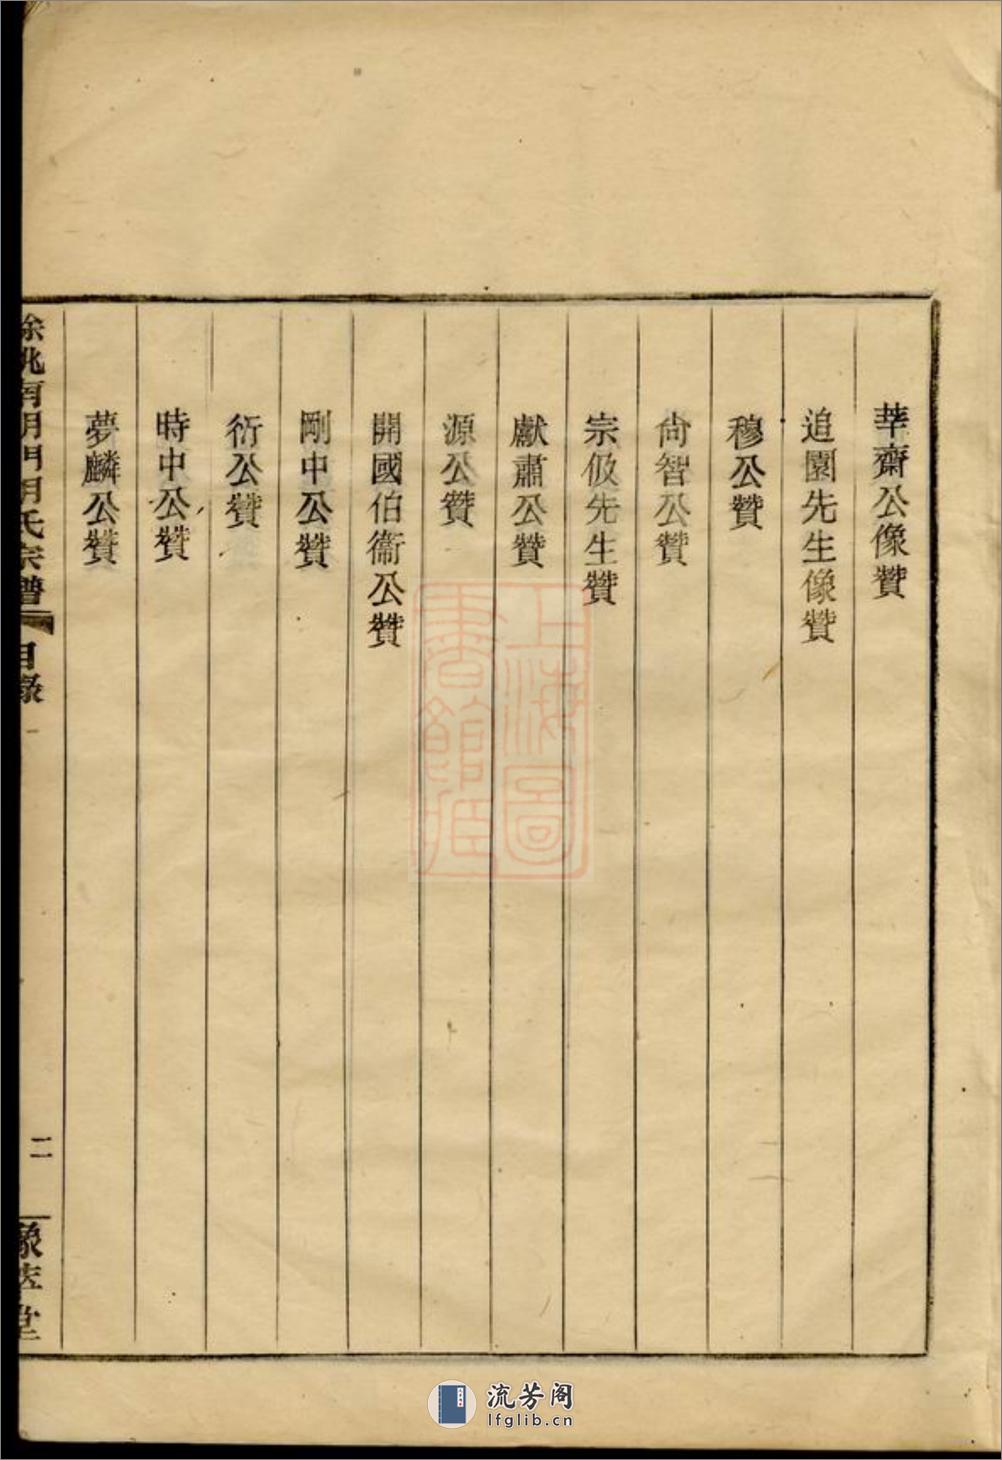 莘齋公像贊
追園先生像贊
穆公贊
尙智公贊
宗伋先生贊
獻肅公贊
源公贊
開國伯衞公贊
剛中公贊
衍公贊
時中公贊
夢麟公贊
餘姚南門明氏宗譜
目錄
二
上海圖
書館
流芳阁
lfglib.cn